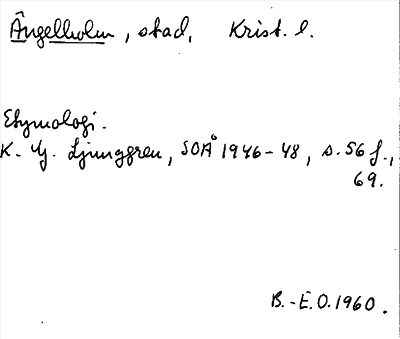 Ängelholm, stad, Krist. l.
Etymologi.
K. G. Ljunggren, SOÅ 1946-48, s. 56 f.,
69.
B.-E.O. 1960.